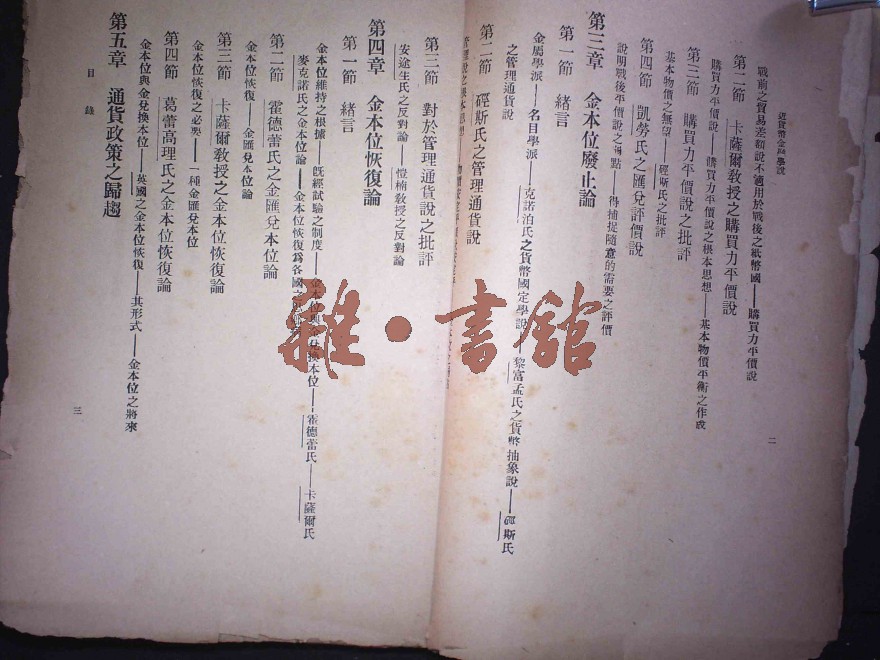 戰前之貿易差額說不適用於戰後之紙幣國——購買力平價說
第二節 卡薩爾教授之購買力平價說
購買力平價說——購買力平價說之根本思想——基本物價平衡之作成
第三節 購買力平價說之批評
基本物價之無望——硜斯氏之批評
第四節 凱勞氏之匯兌評價說
說明戰後平價說之 點——得捕捉隨意的需要之評價
第三章 金本位廢止論
第一節 緒言
金屬學派——名目學派——克諾泊氏之貨幣國定學說——黎富孟氏之貨幣抽象說——硜斯氏
之管理通貨說
二
第二節 硜斯氏之管理通貨說
管理說之根本思想
第三節 對於管理通貨說之批評
安途生氏之反對論——愷楠教授之反對論
第四章 金本位恢復論
第一節 緒言
金本位維持之根據——既經試驗之制度——金本位與金兌換本位——霍德蕾氏——卡薩爾氏
麥克諾氏之金本位論——金本位恢復爲各國之
第二節 霍德蕾氏之金匯兌本位論
金本位恢復——金匯兌本位論
第三節 卡薩爾教授之金本位恢復論
金本位恢復之必要——一種金匯兌本位
第四節 葛蕾高理氏之金本位恢復論
金本位與金兌換本位——英國之金本位恢復——其形式——金本位之將來
第五章 通貨政策之歸趨
目錄
三
雜·書館